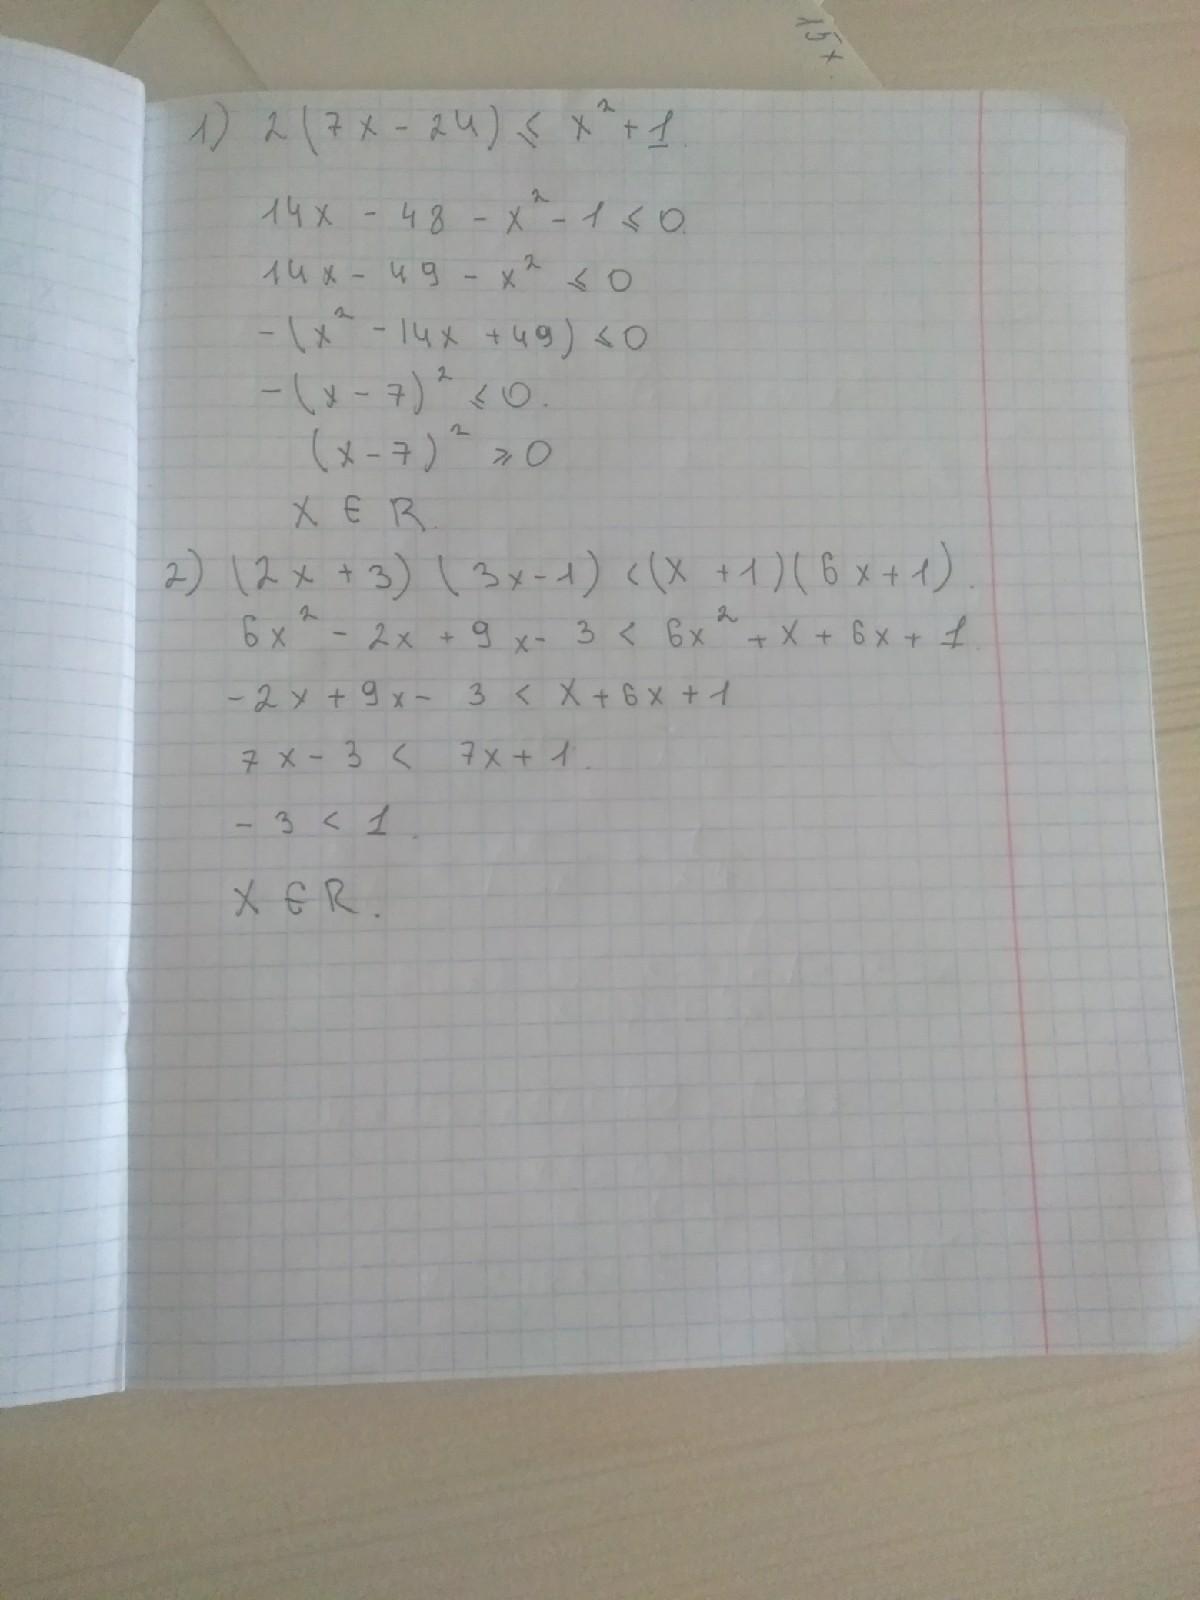 15x
1) 2(7x - 24) ≤ x² + 1
14x - 48 - x² - 1 ≤ 0.
14x - 49 - x² ≤ 0
-(x² - 14x + 49) ≤ 0
-(x - 7)² ≤ 0.
(x - 7)² ≥ 0
X ∈ R.
2) (2x + 3) (3x - 1) < (x + 1)(6x + 1).
6x² - 2x + 9x - 3 < 6x² + x + 6x + 1.
-2x + 9x - 3 < x + 6x + 1
7x - 3 < 7x + 1.
- 3 < 1.
X ∈ R.